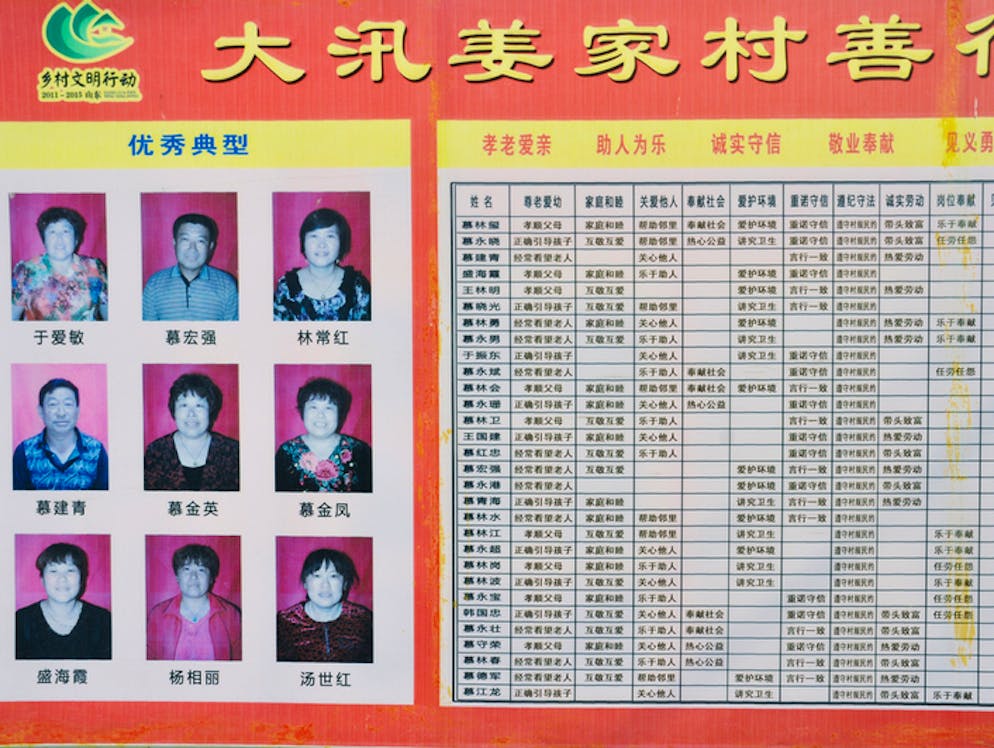 大汛姜家村善行
乡村文明行动
2011-2015 山东
优秀典型
于爱敏 慕宏强 林常红
慕建青 慕金英 慕金凤
盛海霞 杨相丽 汤世红
孝老爱亲 助人为乐 诚实守信 敬业奉献 见义勇
姓名 尊老爱幼 家庭和睦 关爱他人 奉献社会 爱护环境 重诺守信 遵纪守法 诚实劳动 岗位奉献
慕林玺 孝顺父母 家庭和睦 帮助邻里 奉献社会 爱护环境 重诺守信 遵守村规民约 带头致富 乐于奉献
慕永晓 正确引导孩子 互敬互爱 帮助邻里 热心公益 讲究卫生 重诺守信 遵守村规民约 带头致富 任劳任怨
慕建青 经常看望老人 关心他人 言行一致 遵守村规民约 热爱劳动
盛海霞 孝顺父母 家庭和睦 乐于助人 爱护环境 重诺守信 遵守村规民约
王林明 孝顺父母 互敬互爱 爱护环境 言行一致 遵守村规民约 热爱劳动
慕晓光 正确引导孩子 互敬互爱 帮助邻里 讲究卫生 言行一致 遵守村规民约
慕林勇 经常看望老人 家庭和睦 关心他人 爱护环境 遵守村规民约 热爱劳动 乐于奉献
慕永男 经常看望老人 互敬互爱 乐于助人 讲究卫生 遵守村规民约 热爱劳动 乐于奉献
于振东 正确引导孩子 关心他人 讲究卫生 重诺守信 遵守村规民约
慕永斌 经常看望老人 乐于助人 奉献社会 重诺守信 遵守村规民约 任劳任怨
慕林会 孝顺父母 家庭和睦 帮助邻里 奉献社会 爱护环境 言行一致 遵守村规民约
慕永珊 正确引导孩子 家庭和睦 关心他人 热心公益 重诺守信 遵守村规民约
慕林卫 孝顺父母 互敬互爱 乐于助人 言行一致 遵守村规民约 带头致富
王国建 正确引导孩子 家庭和睦 关心他人 重诺守信 遵守村规民约 热爱劳动
慕红忠 经常看望老人 家庭和睦 乐于助人 重诺守信 遵守村规民约 带头致富
慕宏强 正确引导孩子 互敬互爱 爱护环境 言行一致 遵守村规民约 热爱劳动
慕永港 经常看望老人 爱护环境 重诺守信 遵守村规民约 带头致富
慕青海 正确引导孩子 家庭和睦 讲究卫生 言行一致 遵守村规民约 热爱劳动
慕林水 经常看望老人 家庭和睦 帮助邻里 爱护环境 言行一致 遵守村规民约
慕林江 孝顺父母 互敬互爱 帮助邻里 讲究卫生 遵守村规民约 乐于奉献
慕永超 经常看望老人 家庭和睦 关心他人 爱护环境 遵守村规民约 乐于奉献
慕林岗 孝顺父母 家庭和睦 乐于助人 讲究卫生 遵守村规民约 任劳任怨
慕林波 正确引导孩子 互敬互爱 关心他人 讲究卫生 遵守村规民约 乐于奉献
慕永宝 孝顺父母 家庭和睦 乐于助人 重诺守信 遵守村规民约 带头致富 任劳任怨
韩国忠 正确引导孩子 互敬互爱 关心他人 奉献社会 重诺守信 遵守村规民约 带头致富 任劳任怨
慕永壮 经常看望老人 互敬互爱 乐于助人 奉献社会 言行一致 遵守村规民约 带头致富
慕守荣 孝顺父母 家庭和睦 关心他人 热心公益 重诺守信 遵守村规民约 热爱劳动
慕林春 经常看望老人 互敬互爱 乐于助人 热心公益 重诺守信 遵守村规民约 带头致富
慕德军 经常看望老人 互敬互爱 帮助邻里 爱护环境 言行一致 遵守村规民约 热爱劳动
慕江龙 正确引导孩子 关心他人 讲究卫生 重诺守信 遵守村规民约 带头致富 乐于奉献